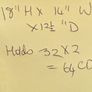 18" H X 14" W
X 12½ "D
Holds 32 X 2
= 64 CD